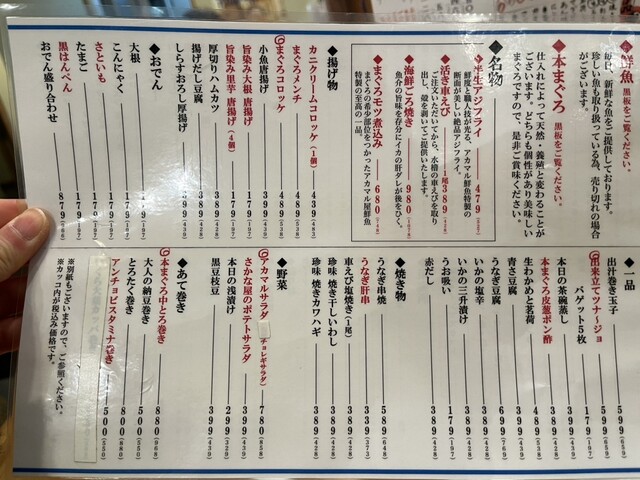 ◆鮮魚 黒板をご覧ください。
毎日、新鮮な魚をご提供しております。
珍しい魚も取り扱っている為、売り切れの場合
がございます。
◆本まぐろ 黒板をご覧ください。
仕入れによって天然・養殖と変わることが
ございます。どちらも個性があり美味しい
まぐろですので、是非ご賞味ください。
◆名物
◆半生アジフライ 479
鮮度と職人技が光る、アカマル鮮魚特製の
断面が美しい絶品アジフライ。
◆活き車えび 1尾389(428)
ご注文いただいてから、水槽の車えびを取り
出し、殻を剥いてご提供いたします。
◆海鮮ごろ焼き 980
魚介の旨味を存分にイカの肝ダレが後をひく。
◆まぐろモツ煮込み 680
まぐろの希少部位をつかったアカマル屋鮮魚
特製の至高の一品。
◆揚げ物
カニクリームコロッケ(1個) 439(483)
まぐろメンチ 489(538)
まぐろコロッケ 489(538)
小魚唐揚げ 399(439)
旨染み大根 唐揚げ 179(197)
旨染み里芋 唐揚げ(4個) 179(197)
厚切りハムカツ 389(428)
揚げだし豆腐 389(428)
しらすおろし厚揚げ 399(439)
◆おでん
大根 179(197)
こんにゃく 179(197)
さといも 179(197)
たまご 179(197)
黒はんぺん 179(197)
おでん盛り合わせ 879
◆一品
出汁巻き玉子 599(659)
出来立てツナージョ 599(659)
バゲット5枚 179(197)
本日の茶碗蒸し 399(439)
本まぐろ皮葱ポン酢 489(538)
生わかめと茗荷 389(428)
青さ豆腐 399(439)
うなぎ豆腐 699(769)
いかの塩辛 389(428)
いかの三升漬け 389(428)
うお吸い 179(197)
赤だし 389(428)
◆焼き物
うなぎ串焼 589(648)
うなぎ肝串 339(373)
車えび塩焼き(1尾) 389(428)
珍味 焼き干しいわし 389(428)
珍味 焼きカワハギ 389(428)
◆野菜
アカマルサラダ(チョレギサラダ) 780(858)
さかな屋のポテトサラダ 399(439)
本日の浅漬け 299(329)
黒豆枝豆 399(439)
◆あて巻き
本まぐろ中とろ巻き 880(968)
大人の納豆巻き 500(550)
とろたく巻き 800(880)
アンチョビスタミナ巻き 500(550)
※別紙もございますので、ご参照ください。
※カッコ内が税込み価格です。